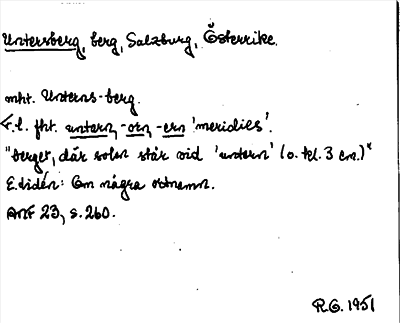 Untersberg, berg, Salzburg, Österrike.
mht. Unterns-berg.
f.l. fht. untarn, -orn, -ern 'meridies'.
"berget, där solen står vid 'untern' (o. kl. 3 em.)"
E. Lidén: Om några ortnamn.
ANF 23, s. 260.
R.G. 1951